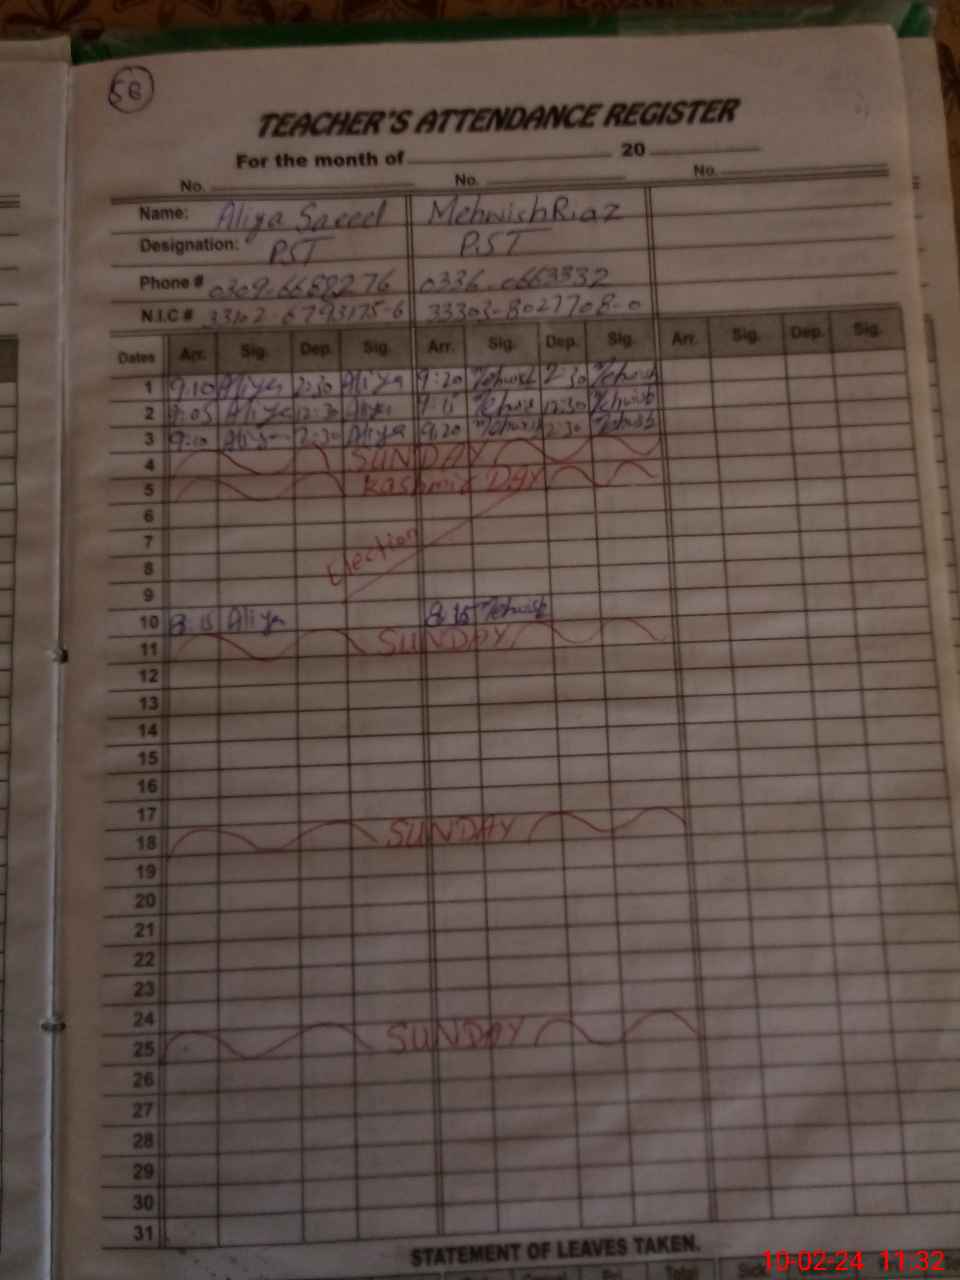 58
TEACHER'S ATTENDANCE REGISTER
For the month of 20
No. No. No.
Name: Aliya Saeed Mehwish Riaz
Designation: PST PST
Phone # 0309-6658276 0336-0663332
N.I.C # 33102-6793175-6 33303-8027708-0
Dates Arr. Sig. Dep. Sig. Arr. Sig. Dep. Sig. Arr. Sig. Dep. Sig.
1 9:10 Aliya 2:30 Aliya 9:20 Mehwish 2:30 Mehwish
2 9:05 Aliya 12:30 Aliya 9:15 Mehwish 12:30 Mehwish
3 9:10 Aliya 2:30 Aliya 9:20 Mehwish 2:30 Mehwish
4 SUNDAY
5 Kashmir DAY
6
7 Election
8
9
10 8:15 Aliya 8:15 Mehwish
11 SUNDAY
12
13
14
15
16
17
18 SUNDAY
19
20
21
22
23
24
25 SUNDAY
26
27
28
29
30
31
STATEMENT OF LEAVES TAKEN.
Total
10-02-24 11:32